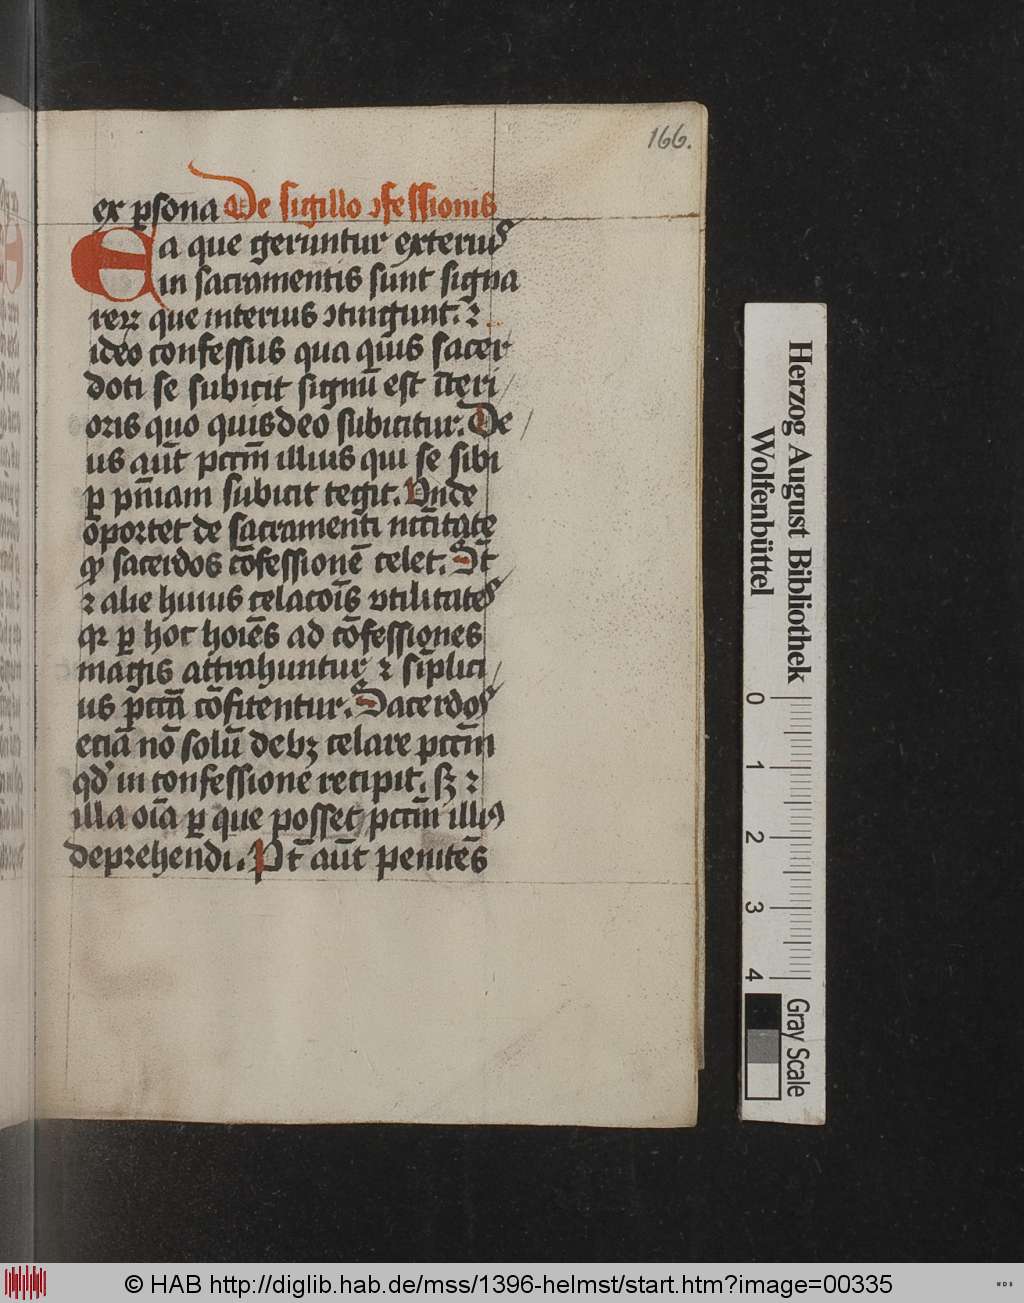 166.
ex ꝑsona De sigillo ꝯfessionis
Ea que geruntur exteriꝰ
in sacramentis sunt signa
reꝝ que interius ꝯtingunt. ⁊
ideo confessus qua quis sacer
doti se subicit signū est īteri
oris quo quis deo subicitur. De
us aūt pctm̄ illius qui se sibi
ꝑ pn̄iam subicit tegit. Vnde
oportet de sacramenti ncc̄itate
ꝙ sacerdos cōfessionē celet. St̄
⁊ alie huius celacōis vtilitateſ
qꝛ ꝑ hoc hoīes ad cōfessiones
magis attrahuntur ⁊ sīplici
us pctā cōfitentur. Sacerdos
eciā nō solū debꝫ celare pctm̄
qd' in confessione recipit. sꝫ ⁊
illa oīa ꝑ que posset pctm̄ illiꝰ
deprehendi. Pt̄ aūt penitēs
Herzog August Bibliothek
Wolfenbüttel
0 1 2 3 4
Gray Scale
© HAB http://diglib.hab.de/mss/1396-helmst/start.htm?image=00335
WDB